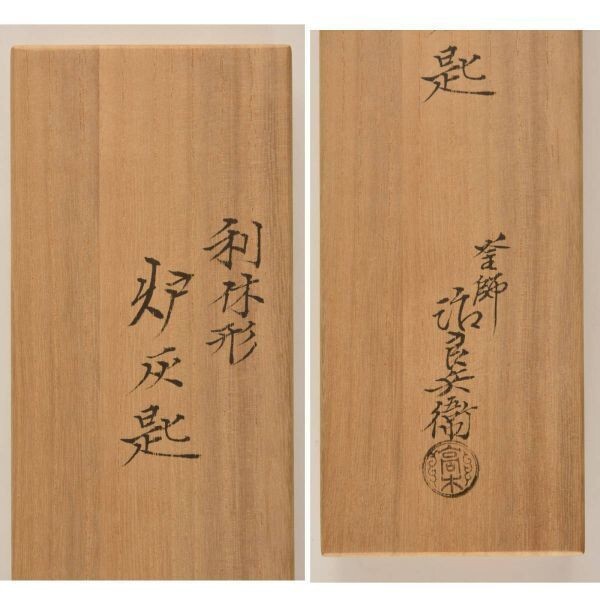 利休形
炉灰匙
匙
釜師
治良兵衛
高木